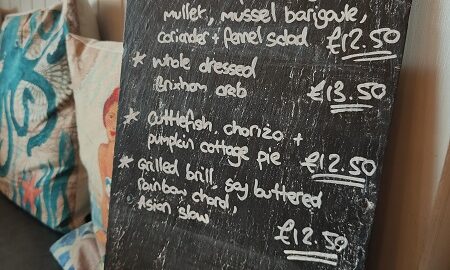 mullet, mussel barigoule,
coriander + fennel salad £12.50
* Whole dressed
Brixham crab £13.50
* Cuttlefish, chorizo +
pumpkin cottage pie £12.50
* Grilled brill, soy buttered
rainbow chard,
Asian slaw
£12.50